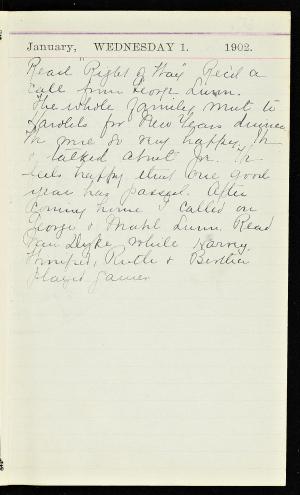 January, WEDNESDAY 1. 1902.
Read "Right of Way" Rec'd a
call from George Dunn.
The whole family went to
Harolds for New Years dinner
so very happy.
talked about
feels happy that one good
year has passed. After
coming home I called on
George & Dunn. Read
Van Dyke while Harry,
Ruth &
played games